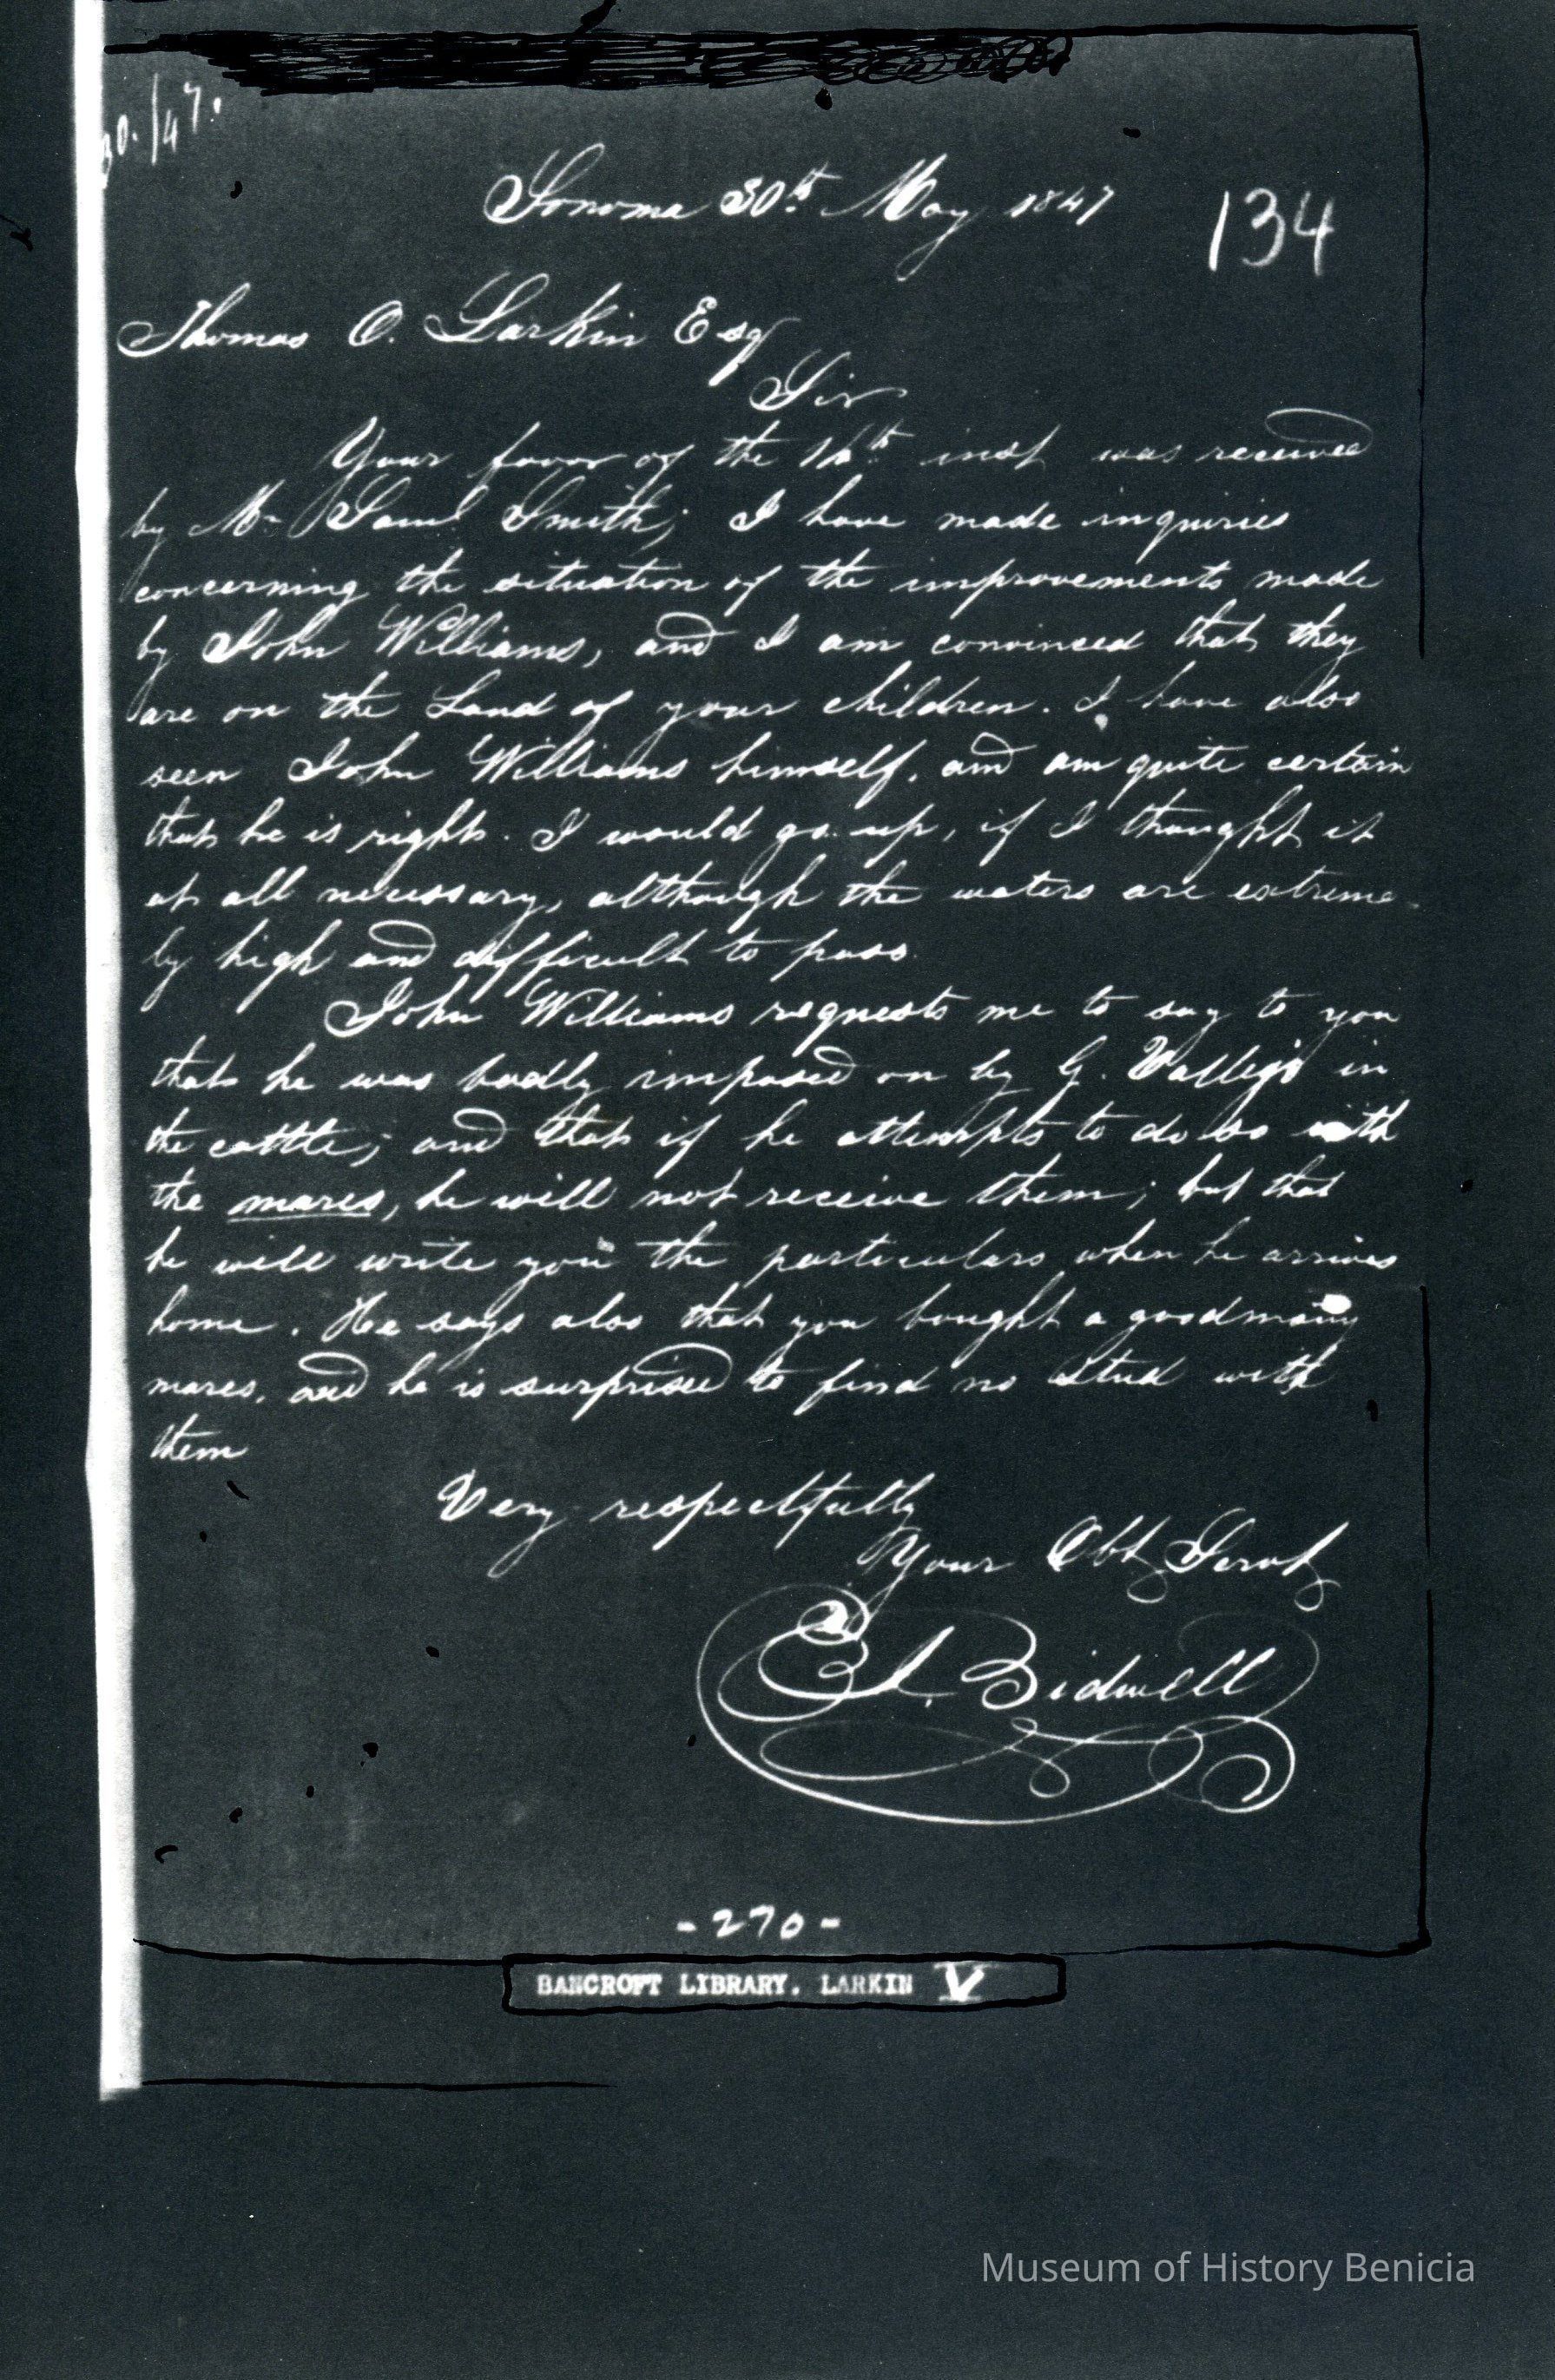 30./47.
Sonoma 30th May 1847
134
Thomas O. Larkin Esq
Sir
Your favor of the 16th inst was received
by Mr Saml Smith; I have made inquiries
concerning the situation of the improvements made
by John Williams, and I am convinced that they
are on the Land of your children. I have also
seen John Williams himself, and am quite certain
that he is right. I would go up, if I thought it
at all necessary, although the waters are extreme-
ly high and difficult to pass.
John Williams requests me to say to you
that he was badly imposed on by G. Vallejo in
the cattle; and that if he attempts to do so with
the mares, he will not receive them; but that
he will write you the particulars when he arrives
home. He says also that you bought a good many
mares, and he is surprised to find no Stud with
them
Very respectfully
Your Obt Servt
J. Bidwell
-270-
BANCROFT LIBRARY, LARKIN V
Museum of History Benicia